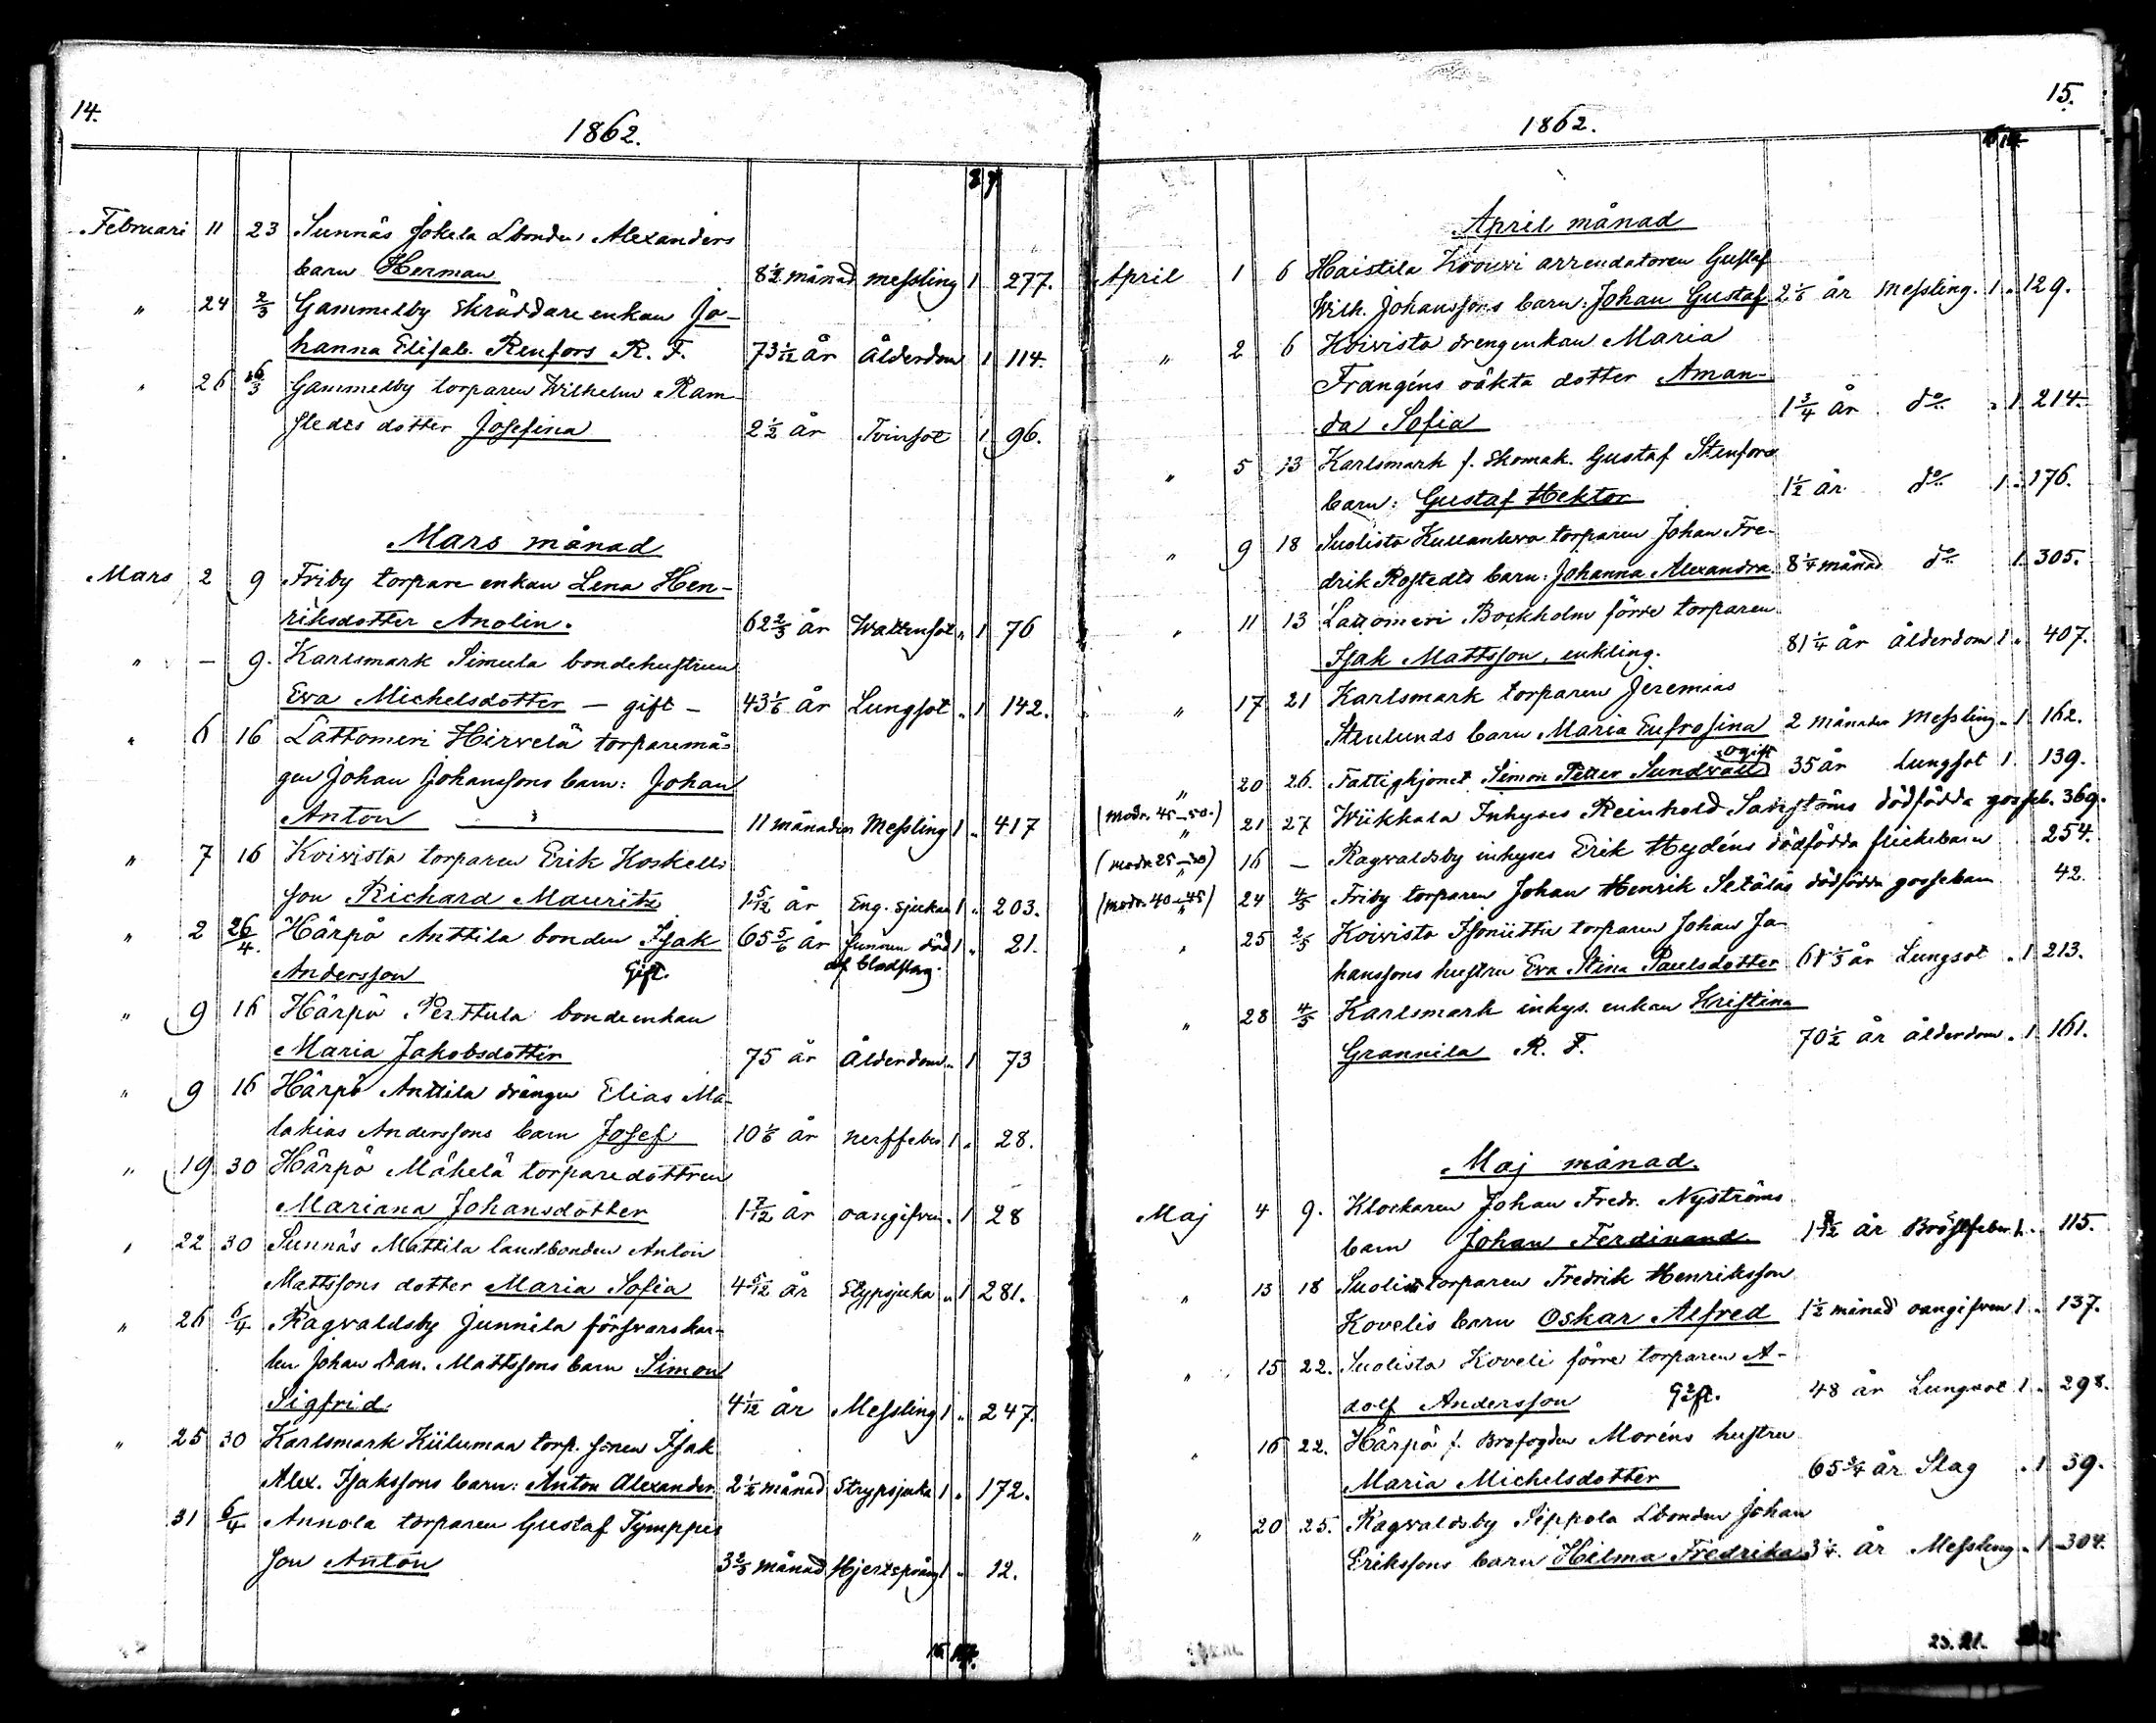 14.
1862.
8 7
Februari 11 23 Sunnäs Jokela Lbonden Alexanders
barn Herman 8 1/2 månad messling 1 277.
" 24 2/3 Gammelby Skräddare enkan Jo-
hanna Elisab. Renfors R. F. 73 1/12 år Ålderdom 1 114.
" 26 16/3 Gammelby torparen Wilhelm Ram-
stedts dotter Josefina 2 1/2 år Tvinsot 1 96.
Mars månad
Mars 2 9 Friby torpare enkan Lena Hen-
riksdotter Anolin. 62 2/3 år Wattensot " 1 76
" — 9. Karlsmark Simula bondehustrun
Eva Michelsdotter — gift — 43 1/6 år Lungsot " 1 142.
" 6 16 Lattomeri Hirvelä torparemå-
gen Johan Johanssons barn: Johan
Anton 11 månader Messling 1 " 417
" 7 16 Koivisto torparen Erik Koskelis
son Richard Mauritz 1 5/12 år Eng. sjukan 1 " 203.
" 2 26/4. Härpö Anttila bonden Isak 65 5/6 år funnen död 1 " 21.
Andersson Gift. af blodslag.
" 9 16 Härpö Perttula bondeenkan
Maria Jakobsdotter 75 år Ålderdom " 1 73
" 9 16 Härpö Anttila drängen Elias Ma-
lakias Anderssons barn Josef 10 1/6 år nerffeber 1 " 28.
" 19 30 Härpö Mäkelä torparedottren
Mariana Johansdotter 1 7/12 år oangifven " 1 28
" 22 30 Sunnäs Mattila landbonden Anton
Mattssons dotter Maria Sofia 4 5/12 år Stypsjuka " 1 281.
" 26 6/4 Ragvaldsby Junnila försvarskar-
len Johan Dan. Mattssons barn Simon
Sigfrid. 4 1/12 år Messling 1 " 247.
" 25 30 Karlsmark Kiilumaa torp. sonen Isak
Alex. Isakssons barn: Anton Alexander 2 1/2 månad Strypsjuka 1 " 172.
31 6/4 Annola torparen Gustaf Tymppis
son Anton 3 2/3 månad Hjertsprång 1 " 12.
15.
1862.
April månad
April 1 6 Haistila Krouvi arrendatoren Gustaf
Wilh. Johanssons barn: Johan Gustaf 2 1/6 år Messling. 1 " 129.
" 2 6 Koivisto drengenkan Maria
Frangéns oäkta dotter Aman-
da Sofia 1 3/4 år do " 1 214.
" 5 13 Karlsmark f. Skomak. Gustaf Stenfors
barn: Gustaf Hektor 1 1/2 år do 1 " 176.
" 9 18 Suolisto Kullanluo torparen Johan Fre-
drik Rostedts barn: Johanna Alexandra 8 1/4 månad do " 1. 305.
" 11 13 Lattomeri Bockholm förre torparen
Isak Mattsson, enkling. 81 1/4 år Ålderdom 1 " 407.
" 17 21 Karlsmark torparen Jeremias
Stenlunds barn Maria Eufrosina 2 månader Messling " 1 162.
" 20 26. Fattighjonet Simon Petter Sundvall ogift 35 år Lungsot 1. 139.
(modr. 45–50.) " 21 27 Wiikkala Inhyses Reinhold dödfödda gosseb. 369.
(modr. 25–30) " 16 — Ragvaldsby inhyses Erik Hydéns dödfödda flickebarn 254.
(modr. 40–45) " 24 4/5 Friby torparen Johan Henrik Setäläs dödfödda gossebarn 42.
" 25 2/5 Koivisto Isoniittu torparen Johan Jo-
hanssons hustru Eva Stina Paulsdotter 61 1/3 år Lungsot " 1 213.
" 28 4/5 Karlsmark inhys. enkan Kristina
Grannila R. F. 70 1/2 år ålderdom " 1 161.
Maj månad.
Maj 4 9. Klockaren Johan Fredr. Nyströms
barn Johan Ferdinand 1 år Bröstfeber 1 " 115.
" 13 18 Suolisto torparen Fredrik Henriksson
Kovelis barn Oskar Alfred 1 1/2 månad oangifven 1 " 137.
" 15 22. Suolisto Koveli förre torparen A-
dolf Andersson Gift. 48 år Lungsot 1 " 298.
" 16 22. Härpö f. Brofogden Moréns hustru
Maria Michelsdotter 65 3/4 år Slag " 1 39.
" 20 25. Ragvaldsby Sippola Lbonden Johan
Erikssons barn Hilma Fredrika 3 1/4. år Messling " 1 304.
23. 21.